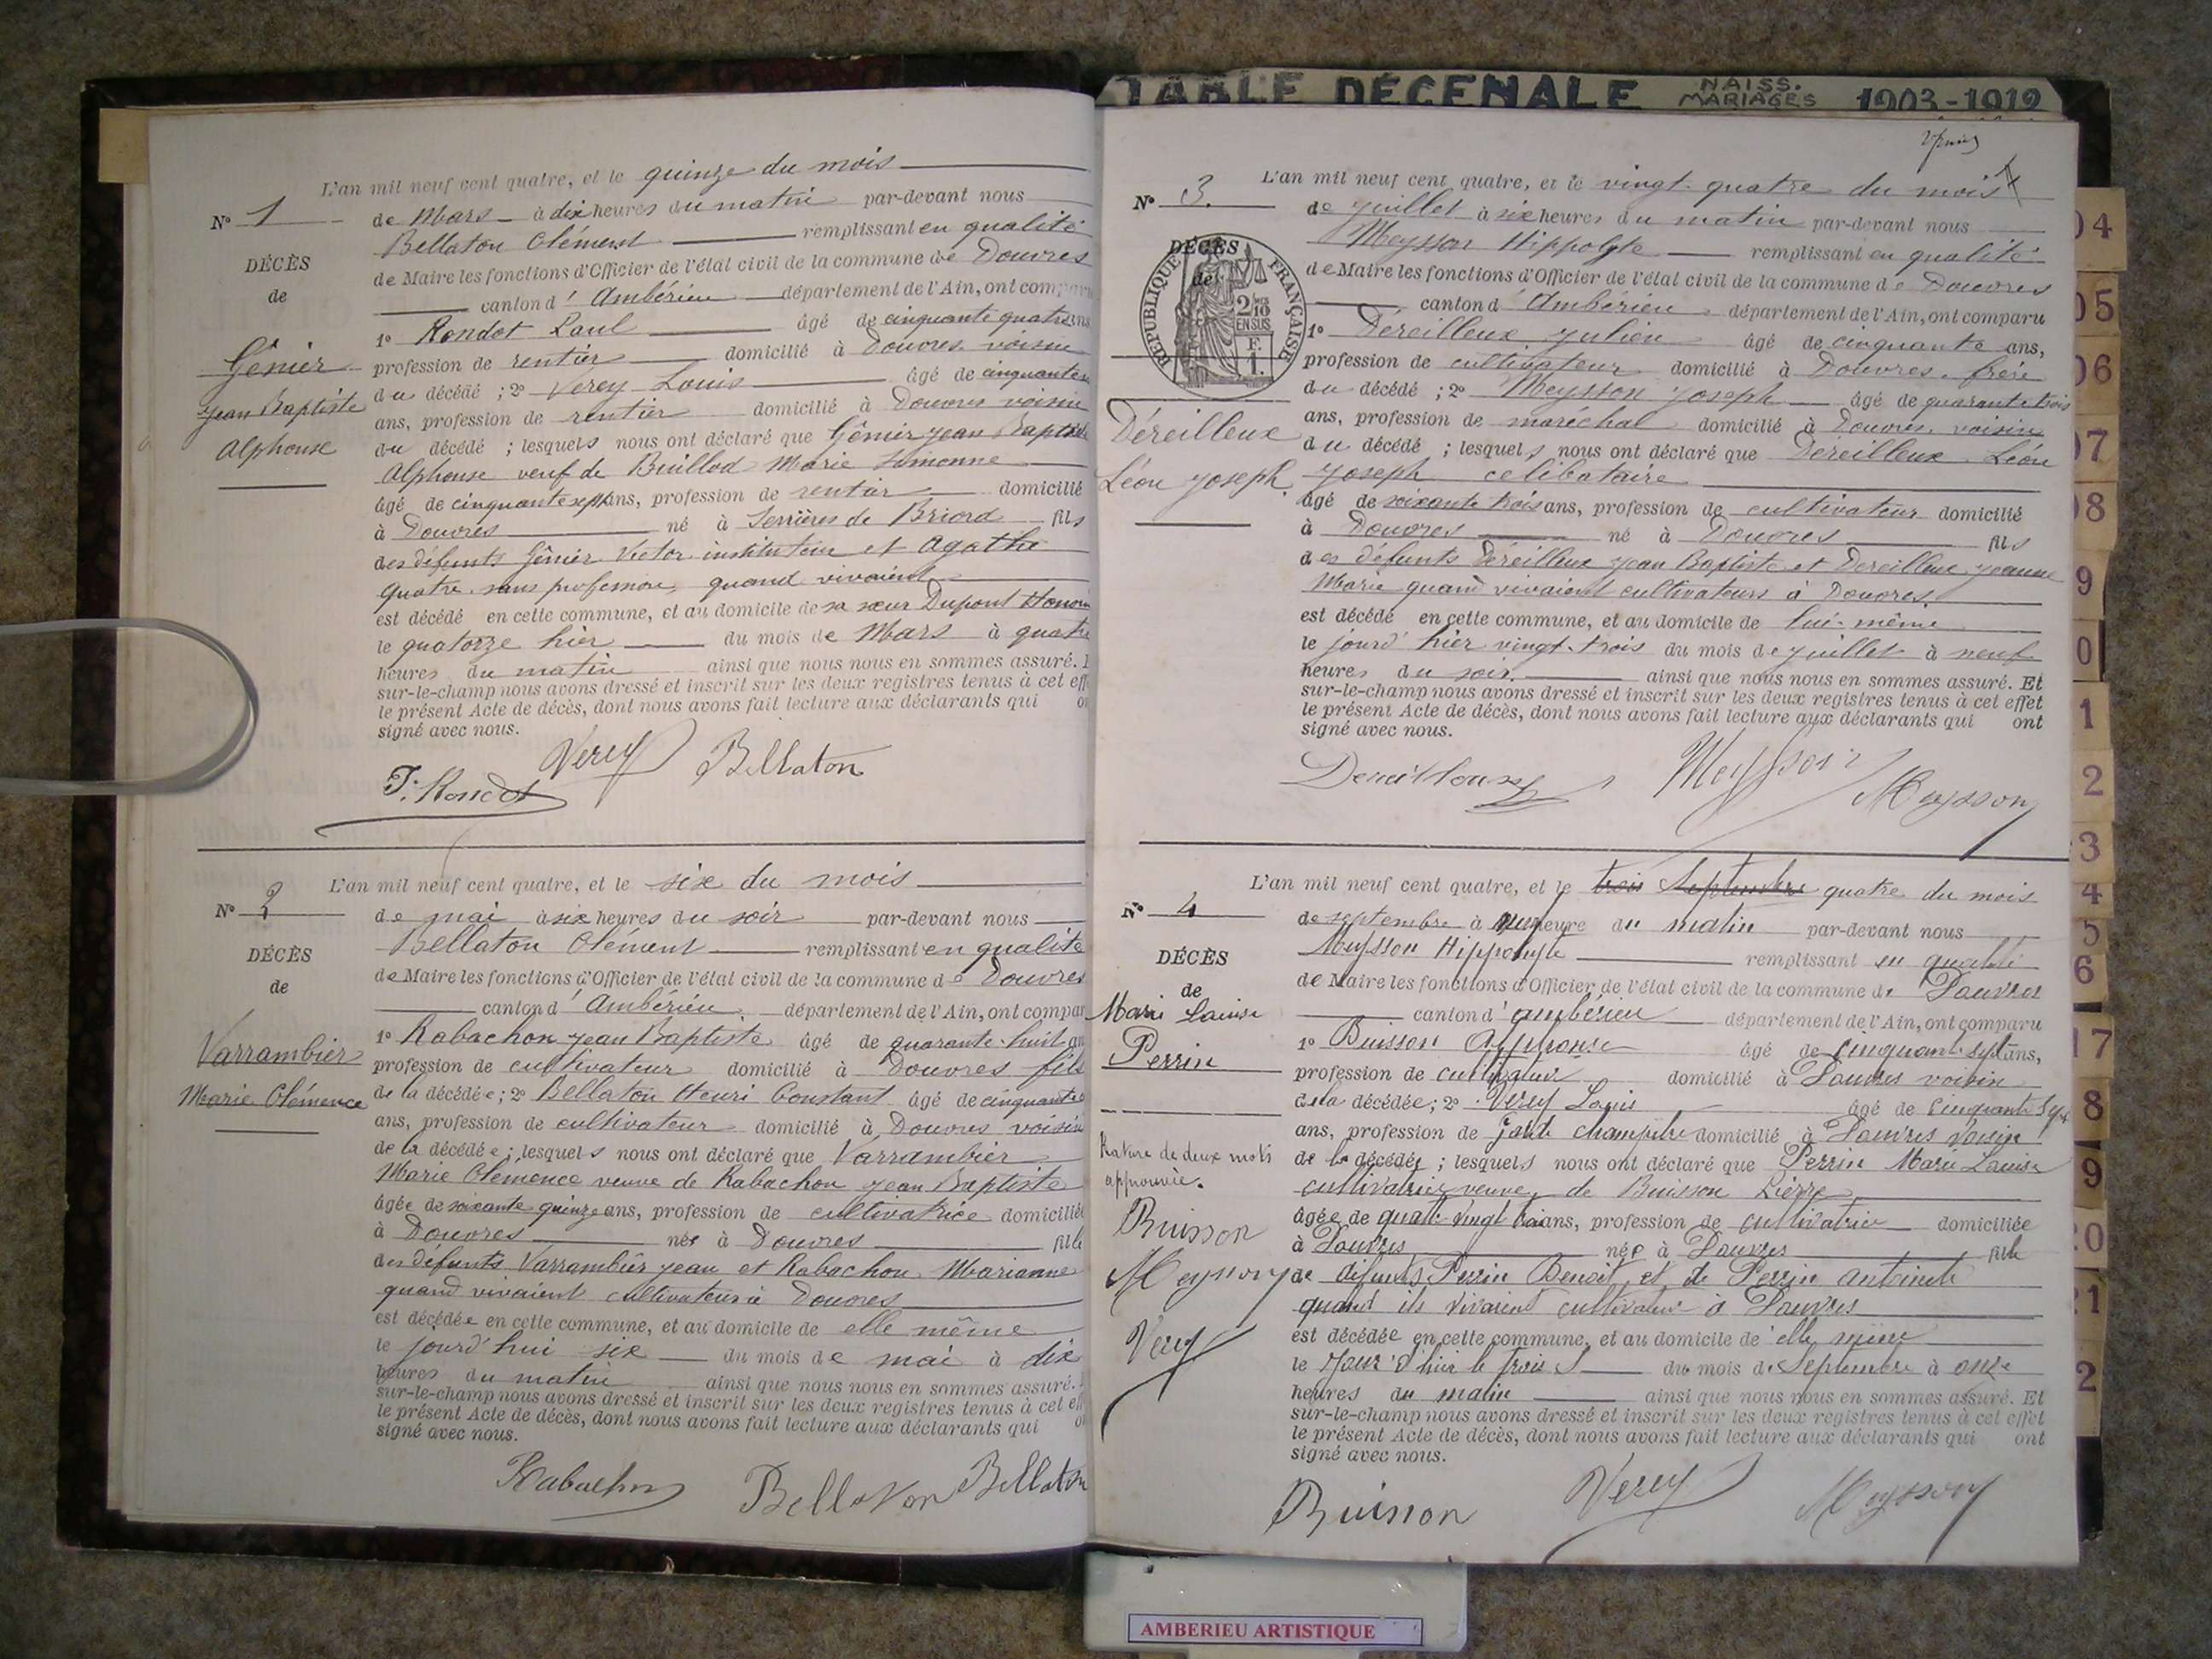 L'an mil neuf cent quatre, et le quinze du mois
N° 1
de Mars à dix heures du matin par-devant nous
Bellaton Clément remplissant en qualité
DÉCÈS
de Maire les fonctions d'Officier de l'état civil de la commune de Douvres
de
canton d'Ambérieu département de l'Ain, ont comparu
1° Rondot Paul âgé de cinquante quatre ans
Génier
profession de rentier domicilié à Douvres voisin
Jean Baptiste
du décédé ; 2° Verey Louis âgé de cinquante
ans, profession de rentier domicilié à Douvres voisin
Alphonse
du décédé ; lesquels nous ont déclaré que Génier Jean Baptiste
Alphonse veuf de Buillod Marie Simonne
âgé de cinquante sept ans, profession de rentier domicilié
à Douvres né à Serrières de Briord fils
des défunts Génier Victor instituteur et Agathe
quatre sans profession, quand vivaient
est décédé en cette commune, et au domicile de sa sœur Dupont
le quatorze hier du mois de Mars à quatre
heures du matin ainsi que nous nous en sommes assuré.
sur-le-champ nous avons dressé et inscrit sur les deux registres tenus à cet eff
le présent Acte de décès, dont nous avons fait lecture aux déclarants qui
signé avec nous.
Verey Bellaton
Rondot
L'an mil neuf cent quatre, et le six du mois
N° 2
de mai à six heures du soir par-devant nous
Bellaton Clément remplissant en qualité
DÉCÈS
de Maire les fonctions d'Officier de l'état civil de la commune de Douvres
de
canton d'Ambérieu département de l'Ain, ont compar
1° Rabachon Jean Baptiste âgé de quarante-huit an
Varrambier
profession de cultivateur domicilié à Douvres fils
Marie Clémence
de la décédée ; 2° Bellaton Henri Constant âgé de cinquante
ans, profession de cultivateur domicilié à Douvres voisin
de la décédée ; lesquels nous ont déclaré que Varrambier
Marie Clémence veuve de Rabachon Jean Baptiste
âgée de soixante quinze ans, profession de cultivatrice domiciliée
à Douvres née à Douvres fille
des défunts Varrambier Jean et Rabachon Marianne
quand vivaient cultivateurs à Douvres
est décédée en cette commune, et au domicile de elle même
le jourd'hui six du mois de mai à dix
heures du matin ainsi que nous nous en sommes assuré.
sur-le-champ nous avons dressé et inscrit sur les deux registres tenus à cet eff
le présent Acte de décès, dont nous avons fait lecture aux déclarants qui
signé avec nous.
Rabachon Bellaton Bellaton
TABLE DÉCENALE NAISS. MARIAGES 1903-1912
L'an mil neuf cent quatre, et le vingt-quatre du mois
N° 3.
de juillet à six heures du matin par-devant nous
Meysson Hippolyte remplissant en qualité
DÉCÈS
de
RÉPUBLIQUE FRANÇAISE
2/10 EN SUS
F. 1.
de Maire les fonctions d'Officier de l'état civil de la commune de Douvres
canton d'Ambérieu département de l'Ain, ont comparu
1° Déreilleux Julien âgé de cinquante ans,
profession de cultivateur domicilié à Douvres, frère
du décédé ; 2° Meysson Joseph âgé de quarante trois
ans, profession de maréchal domicilié à Douvres voisin
Déreilleux
du décédé ; lesquels nous ont déclaré que Déreilleux Léon
Léon Joseph
Joseph célibataire
âgé de soixante trois ans, profession de cultivateur domicilié
à Douvres né à Douvres fils
des défunts Déreilleux Jean Baptiste et Dereilleux Jeanne
Marie quand vivaient cultivateurs à Douvres
est décédé en cette commune, et au domicile de lui-même
le jourd'hier vingt-trois du mois de juillet à neuf
heures du soir ainsi que nous nous en sommes assuré. Et
sur-le-champ nous avons dressé et inscrit sur les deux registres tenus à cet effet
le présent Acte de décès, dont nous avons fait lecture aux déclarants qui ont
signé avec nous.
Meysson
Meysson
L'an mil neuf cent quatre, et le trois Septembre quatre du mois
N° 4
de septembre à heure du matin par-devant nous
Meysson Hippolyte remplissant en qualité
DÉCÈS
de Maire les fonctions d'Officier de l'état civil de la commune de Douvres
de
Marie Louise
canton d'ambérieu département de l'Ain, ont comparu
Perrin
1° Buisson Alphonse âgé de cinquante sept ans,
profession de cultivateur domicilié à Douvres voisin
de la décédée ; 2° Verey Louis âgé de cinquante sept
ans, profession de garde champêtre domicilié à Douvres voisin
Rature de deux mots
approuvée.
de la décédée ; lesquels nous ont déclaré que Perrin Marie Louise
cultivatrice veuve de Buisson Pierre
Buisson
âgée de quatre vingt trois ans, profession de cultivatrice domiciliée
à Douvres née à Douvres fille
Meysson
de défunts Perrin Benoit et de Perrin antoinette
quand ils vivaient cultivateur à Douvres
Verey
est décédée en cette commune, et au domicile de elle même
le Jour d'hier le trois du mois de Septembre à onze
heures du matin ainsi que nous nous en sommes assuré. Et
sur-le-champ nous avons dressé et inscrit sur les deux registres tenus à cet effet
le présent Acte de décès, dont nous avons fait lecture aux déclarants qui ont
signé avec nous.
Buisson Verey Meysson
04
05
06
07
08
9
0
1
2
3
4
5
6
17
18
19
20
21
2
AMBERIEU ARTISTIQUE